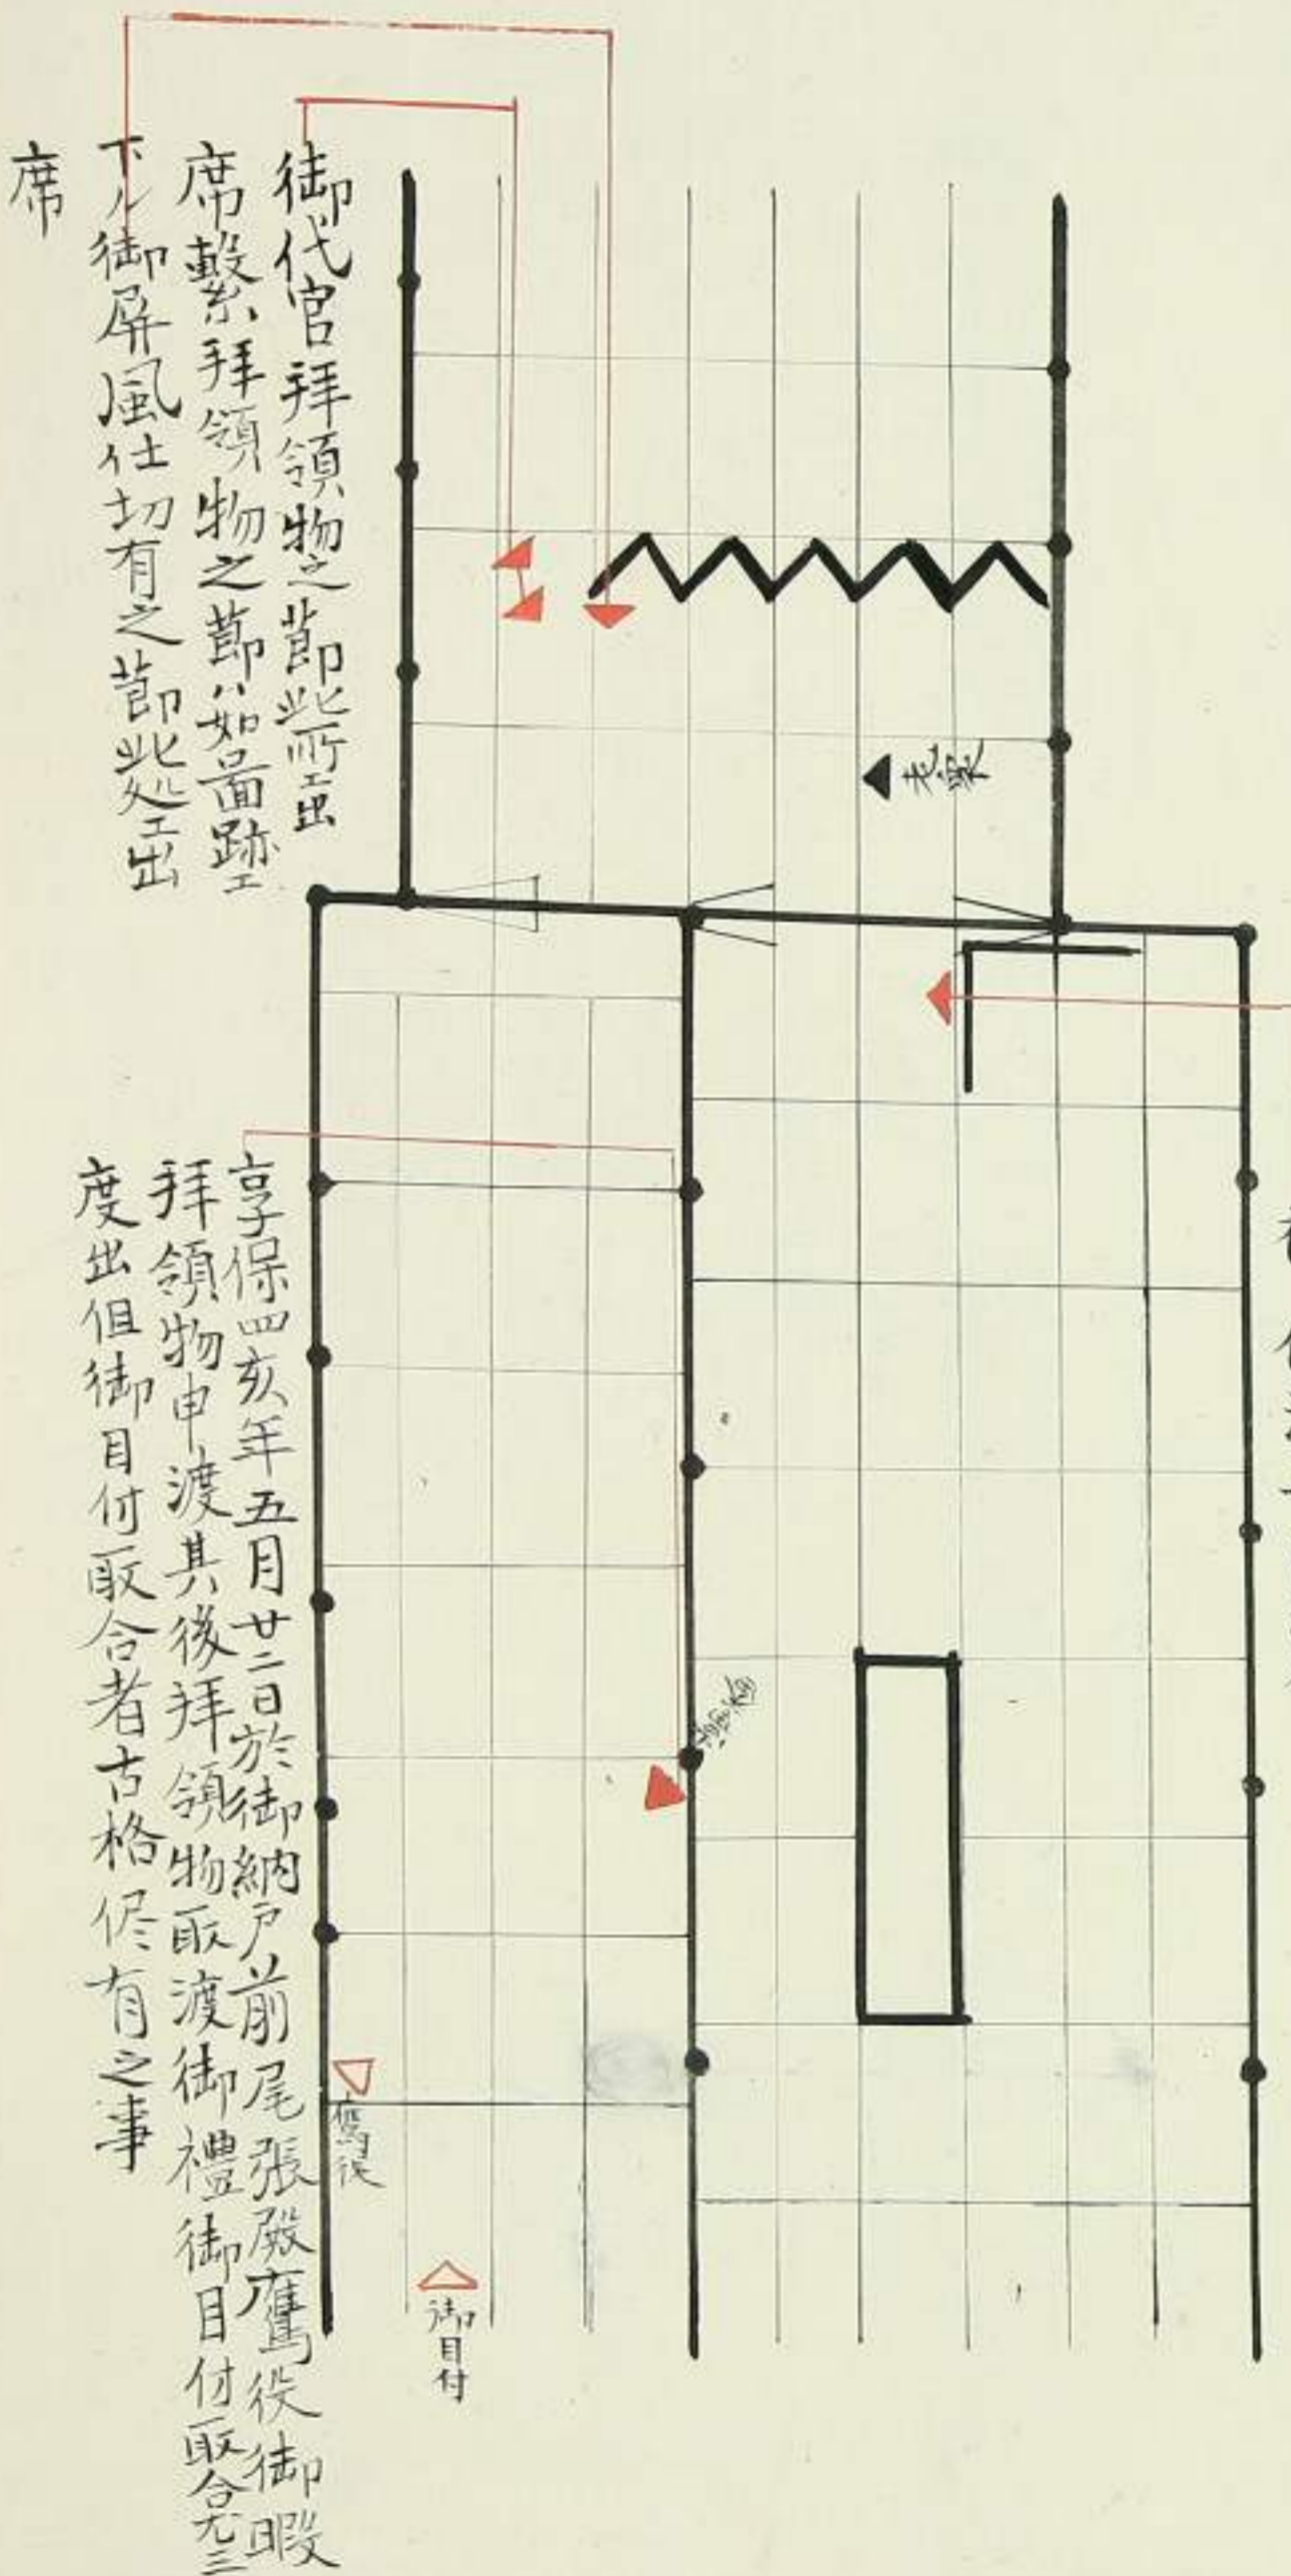 御代官拝領物之節此所エ出
席繋拝領物之節ハ如畾跡エ
下ル御屏風仕切有之節此処エ出
席
老衆
享保四亥年五月廿二日於御納戸前尾張殿鷹役御暇
拝領物申渡其後拝領物取渡御禮御目付取合尤三
度出但御目付取合者古格侭有之事
鷹役
御目付